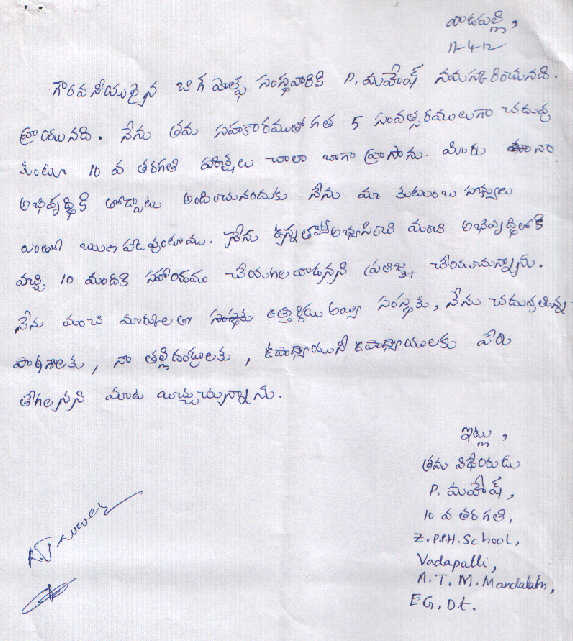 వాడపల్లి,
17-4-12
గౌరవనీయులైన బిగ్ హెల్ప్ సంస్థవారికి P. మహేష్ నమస్కరించునది.
వ్రాయునది. నేను తమ సహకారముతో గత 5 సంవత్సరములుగా చదువు
కుంటూ 10 వ తరగతి పరీక్షలు చాలా బాగా వ్రాసాను. మీరు నా
అభివృద్ధికి తోడ్పాటు అందించినందుకు నేను మా కుటుంబ సభ్యులు
ఎంతో వుంటాము. నేను మంచి అభివృద్ధిలోకి
వచ్చి 10 మందికి సహాయము చేయగలవాడ్నవుతానని ప్రతిజ్ఞ చేయుచున్నాను.
నేను మంచి మార్కులతో ఉత్తీర్ణుడు అయ్యి సంస్థకు, నేను చదువుతున్న
పాఠశాలకు, నా తల్లిదండ్రులకు, ఉపాధ్యాయిని ఉపాధ్యాయులకు పేరు
తేగలనని మాట యిచ్చుచున్నాను.
ఇట్లు,
తమ విధేయుడు
P. మహేష్,
10 వ తరగతి,
Z.P.P.H. School,
Vadapalli,
A.T.M. Mandalam,
E.G.Dt.